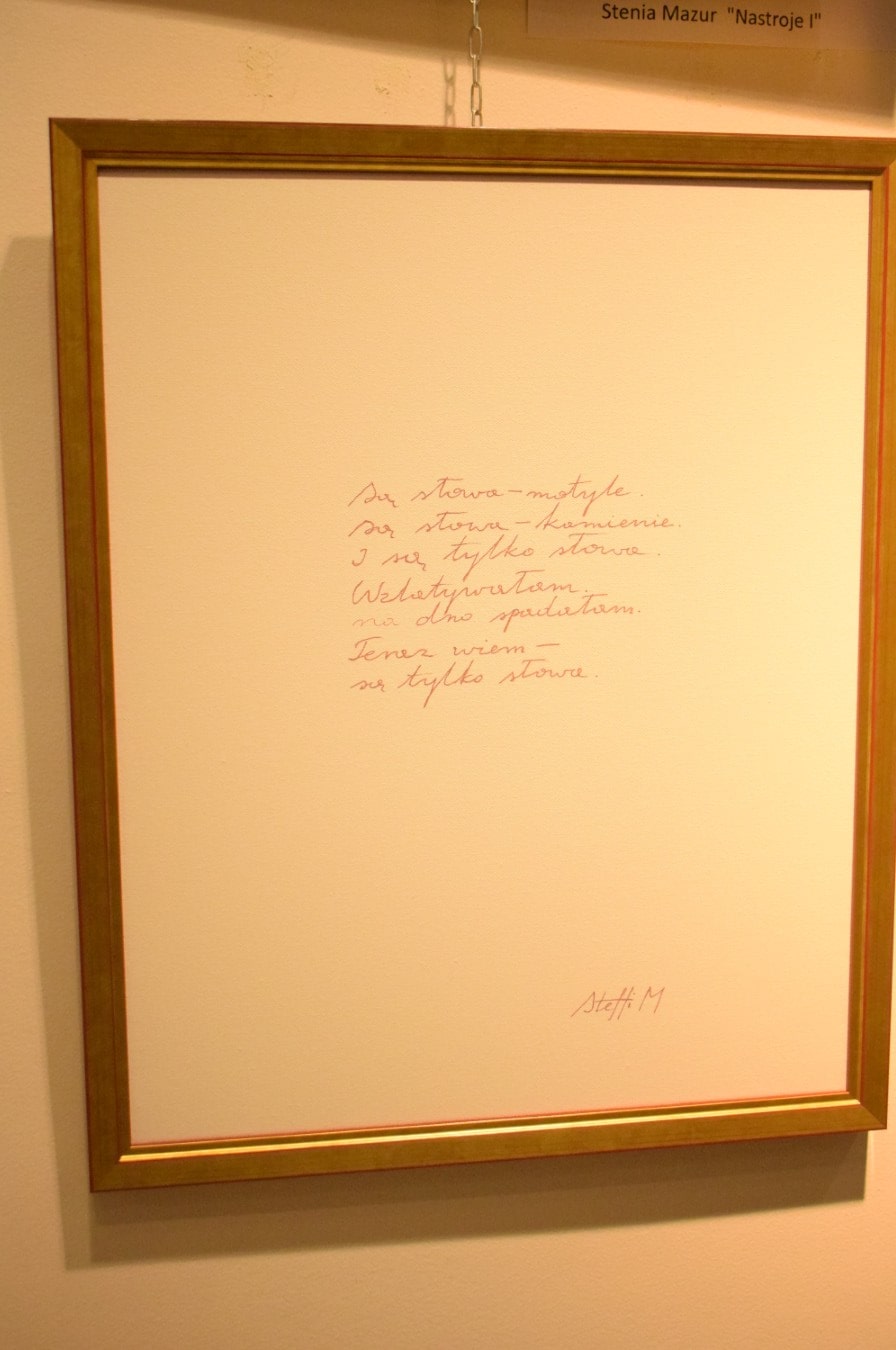 Stenia Mazur "Nastroje I"
Są słowa – motyle.
są słowa – kamienie.
I są tylko słowa.
Wzlatywałam.
na dno spadałam.
Teraz wiem –
są tylko słowa.
Steffi M